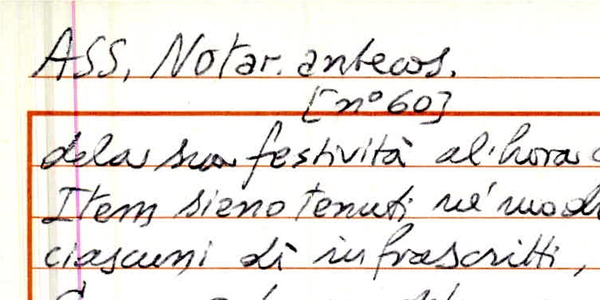 ASS, Notar. antecos.
[n° 60]
dela sua festività al'hora
Item sieno tenuti ne' modi
ciascuni dì infrascritti,